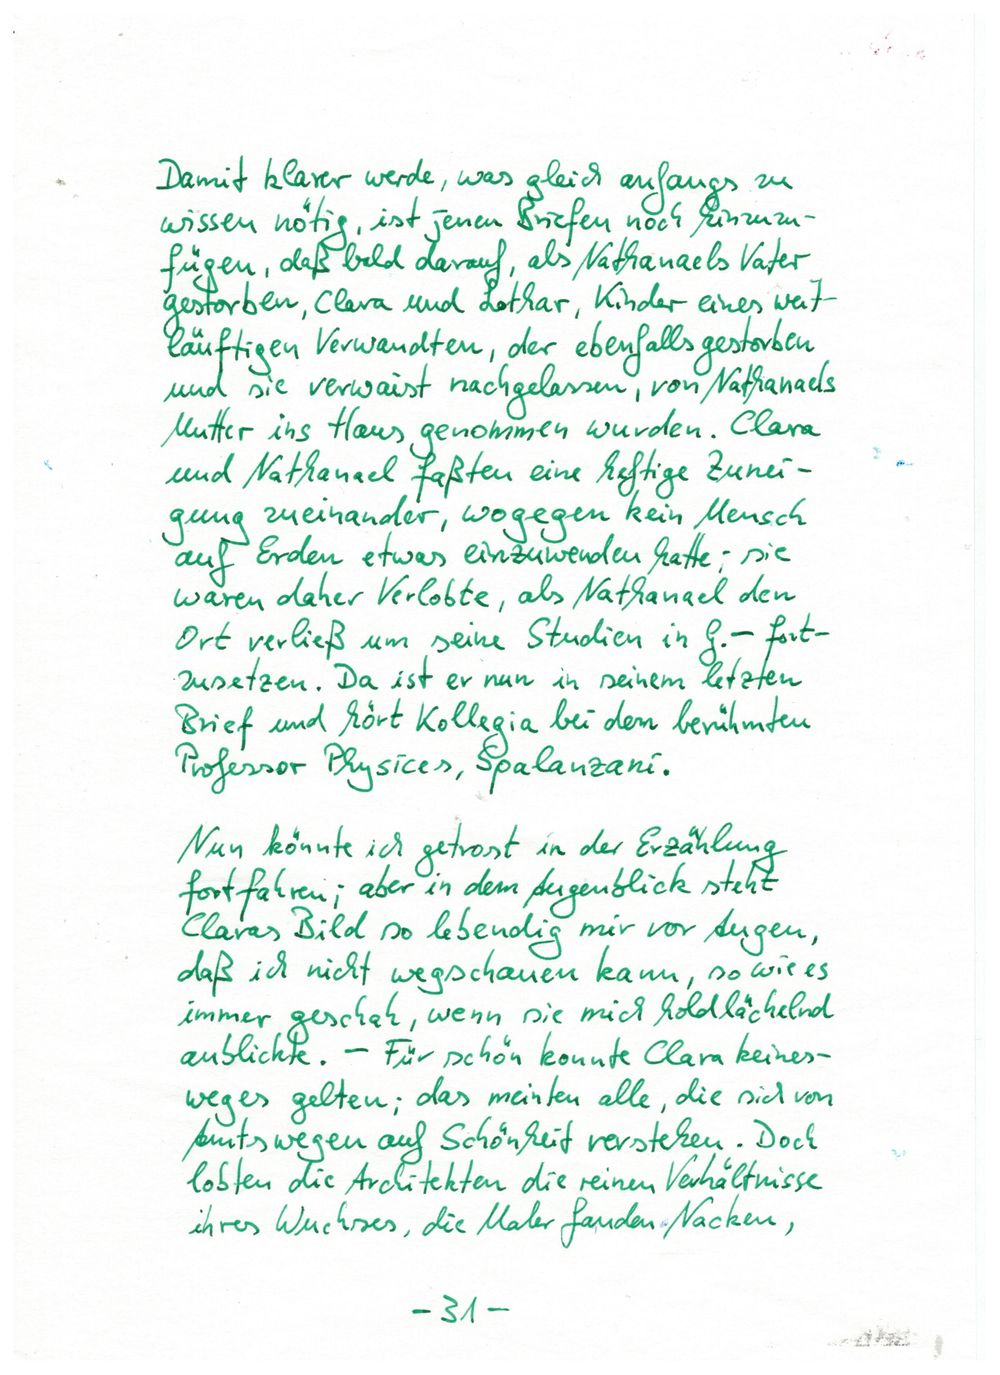 Damit klarer werde, was gleich anfangs zu
wissen nötig, ist jenen Briefen noch hinzuzu-
fügen, daß bald darauf, als Nathanaels Vater
gestorben, Clara und Lothar, Kinder eines weit-
läuftigen Verwandten, der ebenfalls gestorben
und sie verwaist nachgelassen, von Nathanaels
Mutter ins Haus genommen wurden. Clara
und Nathanael faßten eine heftige Zunei-
gung zueinander, wogegen kein Mensch
auf Erden etwas einzuwenden hatte; sie
waren daher Verlobte, als Nathanael den
Ort verließ um seine Studien in G.– fort-
zusetzen. Da ist er nun in seinem letzten
Brief und hört Kollegia bei dem berühmten
Professor Physices, Spalanzani.
Nun könnte ich getrost in der Erzählung
fortfahren; aber in dem Augenblick steht
Claras Bild so lebendig mir vor Augen,
daß ich nicht wegschauen kann, so wie es
immer geschah, wenn sie mich holdlächelnd
anblickte. – Für schön konnte Clara keines-
weges gelten; das meinten alle, die sich von
Amtswegen auf Schönheit verstehen. Doch
lobten die Architekten die reinen Verhältnisse
ihres Wuchses, die Maler fanden Nacken,
– 31 –